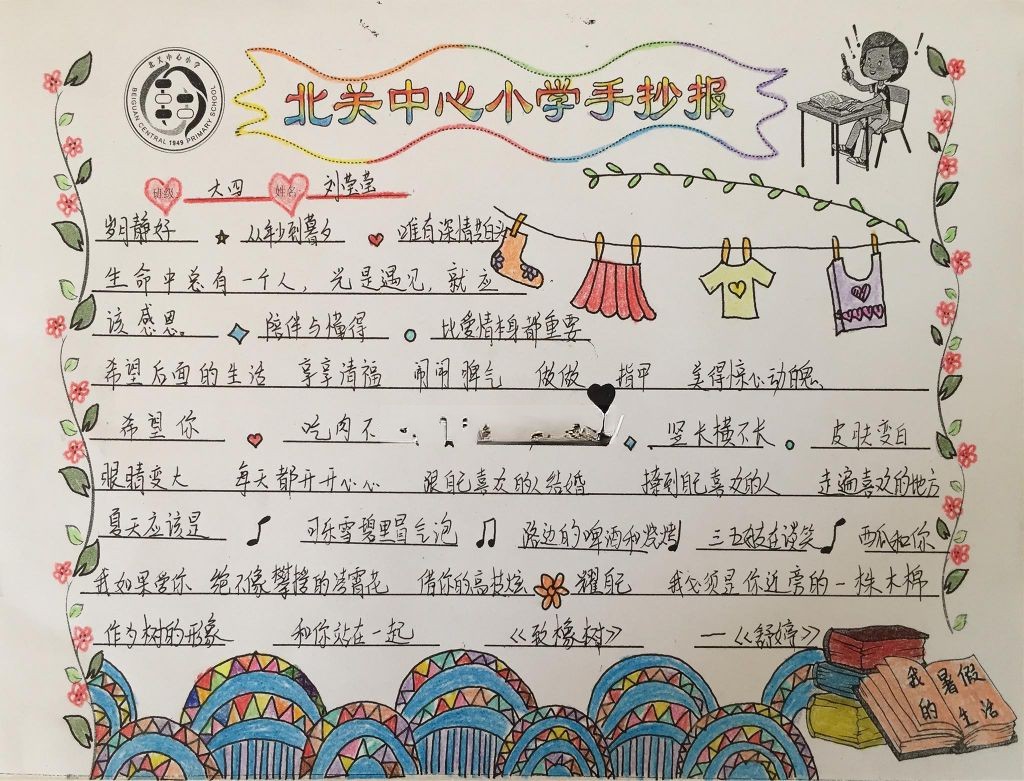 北关中心小学
BEIGUAN CENTRAL 1949 PRIMARY SCHOOL
北关中心小学手抄报
班级: 大四 姓名: 刘莹莹
岁月静好 从年少到暮夕 唯有深情共白头
生命中总有一个人，光是遇见，就应
该感恩。 陪伴与懂得 比爱情本身都重要
希望后面的生活 享享清福 闹闹脾气 做做 指甲 美得惊心动魄
希望你 吃肉不 竖长横不长 皮肤变白
眼睛变大 每天都开开心心 跟自己喜欢的人结婚 撩到自己喜欢的人 走遍喜欢的地方
夏天应该是 可乐雪碧里冒气泡 路边的啤酒和烧烤 三五好友在谈笑 西瓜和你
我如果爱你 绝不像攀援的凌霄花 借你的高枝炫 耀自己 我必须是你近旁的一株木棉
作为树的形象 和你站在一起 《致橡树》 一《舒婷》
我 暑假
的 生活